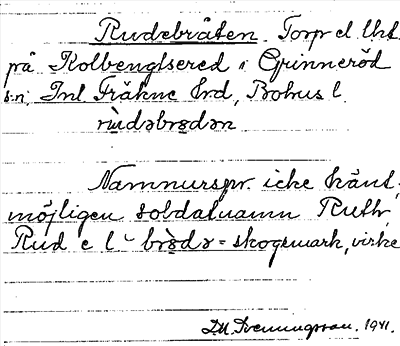 Rudebråten. Torp el lht
på Kolbengtsered i Grinneröd
s:n, Inl Fräkne hrd, Bohus l
rùdəbrødən
Namnurspr. icke känt,
möjligen soldatnamn Ruth,
Rud e l brødə = skogsmark, virke
1941.